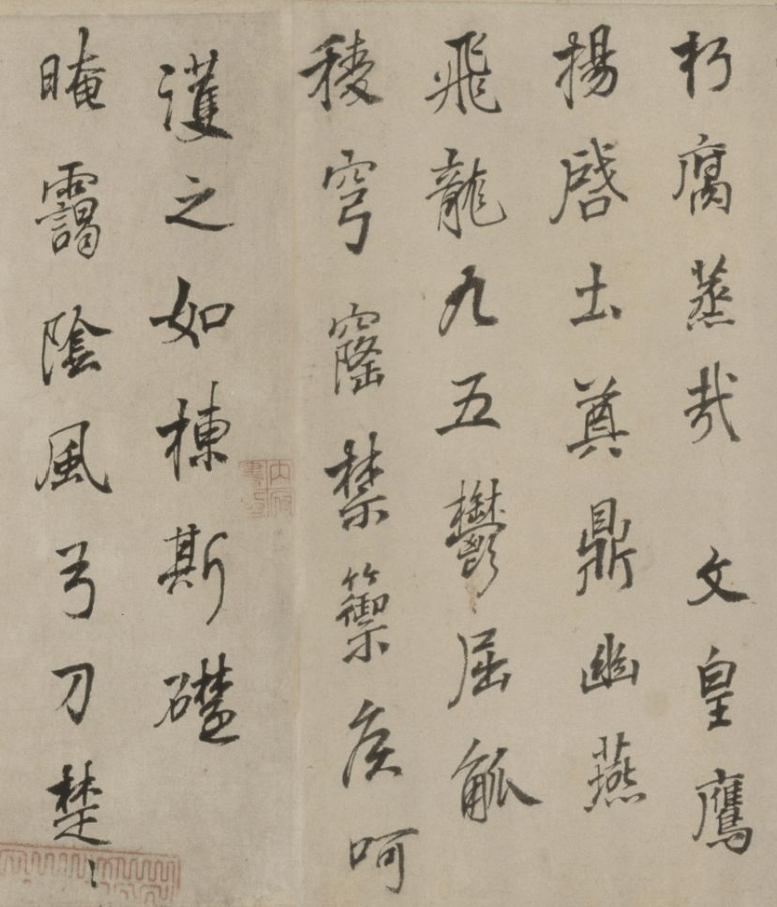 朽腐蒸哉　文皇鷹
揚啓土奠鼎幽燕
飛龍九五鬱屈觚
稜穹窿禁籞矦呵
護之如棟斯礎
晻靄陰風弓刀楚〻